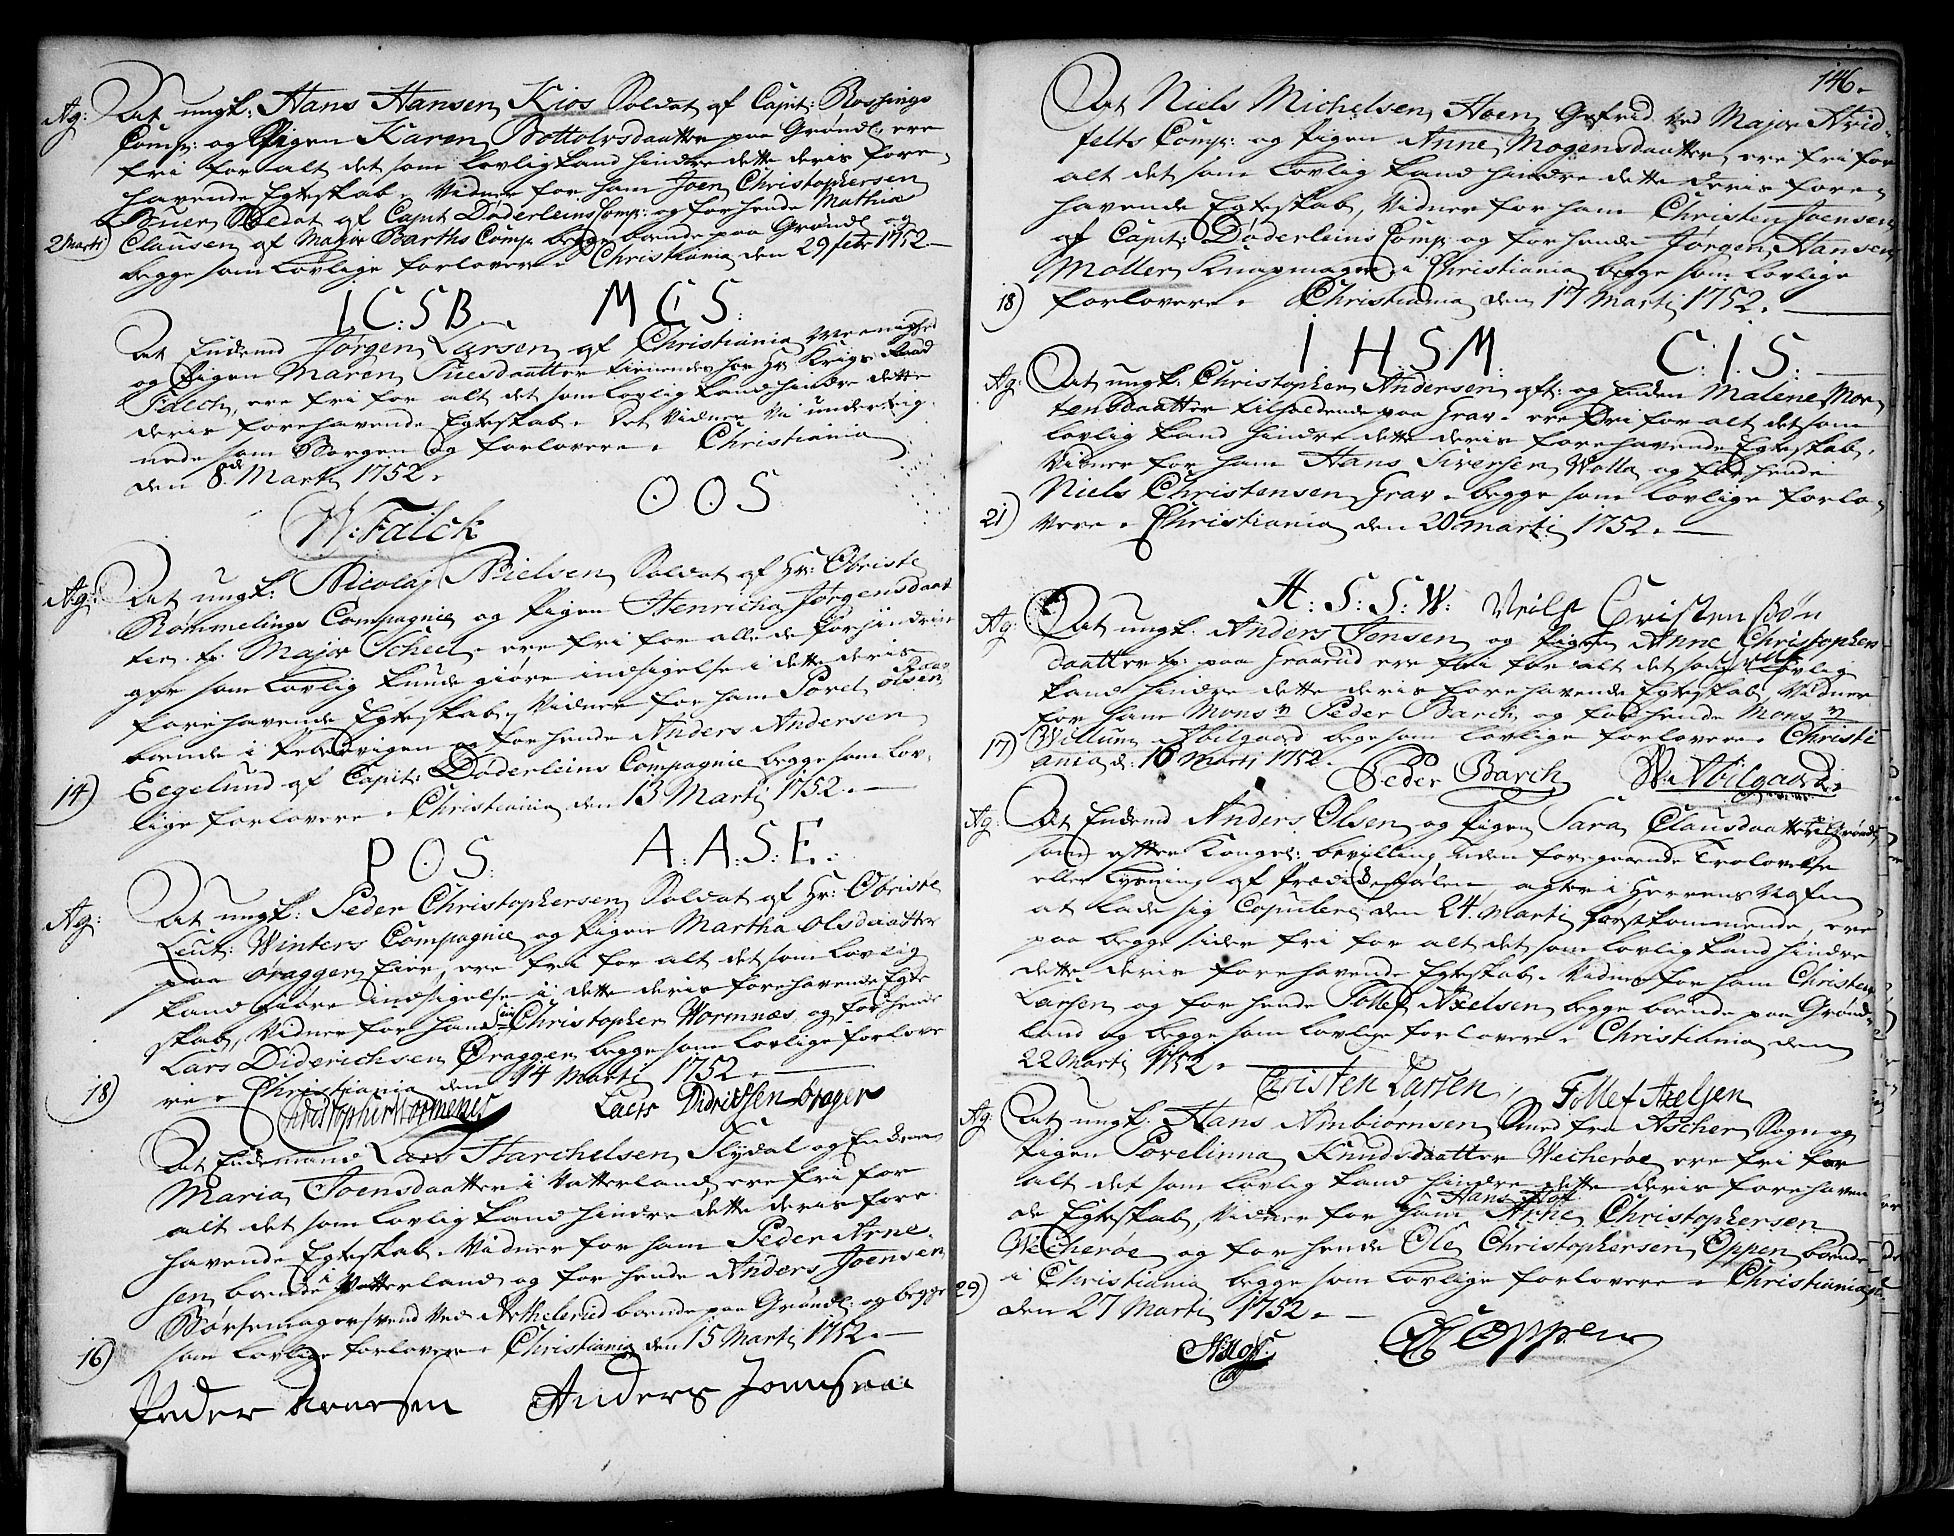 Ag: At ungk: Hans Hansen Kios Soldat af Capit: Rossings
Comp: og Pigen Karen Bottolvsdaatter paa Grøndl: ere
fri for alt det som lovlig kand hindre dette deris fore-
havende Egteskab. Vidner for ham Joen Christophersen
Buer Soldat af Capit Døderleins Comp: og for hende Mathia
2 Marti) Clausen af Major Barths Comp. begge boende paa Grøndl og
begge som lovlige forlovere. Christiania den 29 febr 1752.
I C: S B. M C S:
At Enkemd Jørgen Larsen af Christiania Meenighed
og Pigen Maren Tuesdaatter tienende hos Hr Krigs Raad
Falch, ere fri for alt det som lovlig kand hindre dette
deris forehavende Egteskab. Det Vidner Vi underteig-
nede som Borgen og forlovere. Christiania
den 8de Marti 1752.
O O S
W: Falck
Ag: At ungk: Nicolay Nielsen Soldat af Hr: Obriste
Rømmelings Compagnie og Pigen Henricha Jørgensdaat
ter tp: Major Scheel, ere fri for alle de forhindrin
ger som lovlig kunde giøre indsigelse i dette deris
forehavende Egteskab, Vidner for ham Povel Olsen
boende i Pebervigen og for hende Anders Andersen
Eegelund af Capit: Døderleins Compagnie begge som lov-
14) lige forlovere. Christiania den 13 Marti 1752.
P O S: A. A. S. E.
Ag: At ungk: Peder Christophersen Soldat af Hr: Obriste
Leut: Winters Compagnie og Pigen Martha Olsdaatter
paa Øraggen Eier, ere fri for alt det som lovlig
kand giøre indsigelse i dette deris forehavende Egte
skab, Vidner for ham Christopher Wormnæs, og for hende
Lars Diderichsen Øraggen begge som lovlige forlove
18) re. Christiania den 14 Marti 1752.
Christopher Wormenes Lars Didrichsen Øragen
At Enkemand Lars Harchelsen Kydal og Enken
Maria Joensdaatter i Vatterland, ere fri for
alt det som lovlig kand hindre dette deris fore-
havende Egteskab. Vidner for ham Peder Arne-
sen boende i Vatterland og for hende Anders Joensen
Børsemagersvend ved boende paa Grøndl: og begge
16) som lovlige forlovere. Christiania den 15 Marti 1752.
Peder Arnesen Anders Joensen
146.
At Niels Michelsen Hoen Gefrid. Ved Major Hvid-
felts Comp: og Pigen Anne Mogensdaatter, ere fri for
alt det som lovlig kand hindre dette deris fore-
havende Egteskab, Vidner for ham Christen Joensen
af Capit: Døderleins Comp: og for hende Jørgen Hansen
Møller Knapmager i Christiania begge som lovlige
18) forlovere. Christiania den 17 Marti 1752.
I H. S. M. C. I. S.
Ag: At ungk: Christopher Andersen gft: og Enken Malene Mor-
tensdaatter tilholdende paa Grav. ere fri for alt det som
lovlig kand hindre dette deris forehavende Egteskab.
Vidner for ham Hans Siversen Wolla, og for hende
Niels Christensen Grav. begge som lovlige forlo-
21) vere. Christiania den 20 Marti 1752.
H: S: S: W: Neils Cristensøn
Ag: At ungk: Anders Jonsen og Pigen Anne Christophers
daatter tp: paa Graarud ere fri for alt det som lovlig
kand hindre dette deris forehavende Egteskab, Vidner
for ham Monsr Peder Barch og for hende Monsr
17) Willum Abilgaard begge som lovlige forlovere. Christi
ania d: 16 Marti 1752.
Peder Barch Wm Abilgaard
Ag: At Enkemd Anders Olsen og Pigen Sara Clausdaatter i Grøndl,
som efter Kongel: bevilling uden foregaaende Trolovelse
eller Lysning af Prædikestolen, agter i Herrens Nafn
at lade sig Copulere den 24 Marti førstkommende, ere
paa begge sider fri for alt det som lovlig kand hindre
dette deris forehavende Egteskab. Vidner for ham Christen
Larsen og for hende Tollef Axelsen begge boende paa Grønd-
land og begge som lovlige forlovere. Christiania den
22 Marti 1752.
Christen Larsen, Tollef Axelsen
Ag: At ungk: Hans Ambiørnsen Smed fra Ascher Sogn og
Pigen Povelinna Knudsdaatter Wecherøe ere fri for
alt det som lovlig kand hindre dette deris forehaven
de Egteskab, Vidner for ham Hans Hof Arne Christophersen
Wecherøe og for hende Ole Christophersen Oppen, boende
29) i Christiania begge som lovlige forlovere. Christiania
den 27 Marti 1752.
H: Hof: OC Oppen